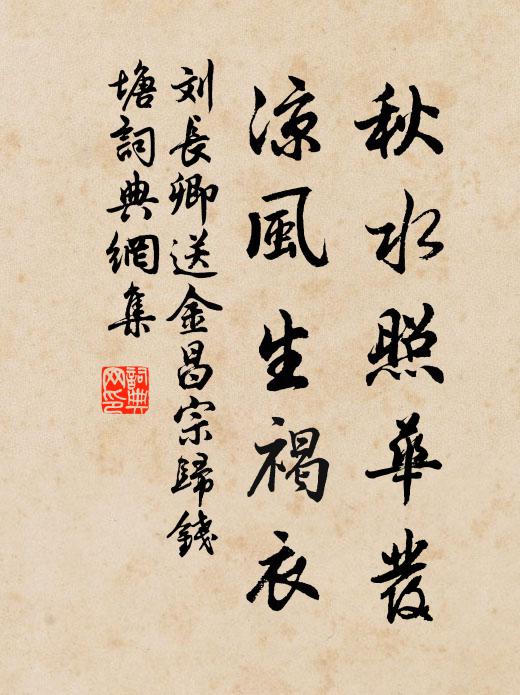 秋水照華發
涼風生褐衣
刘長卿送金昌宗歸錢
塘詞典網集
詞典
网印